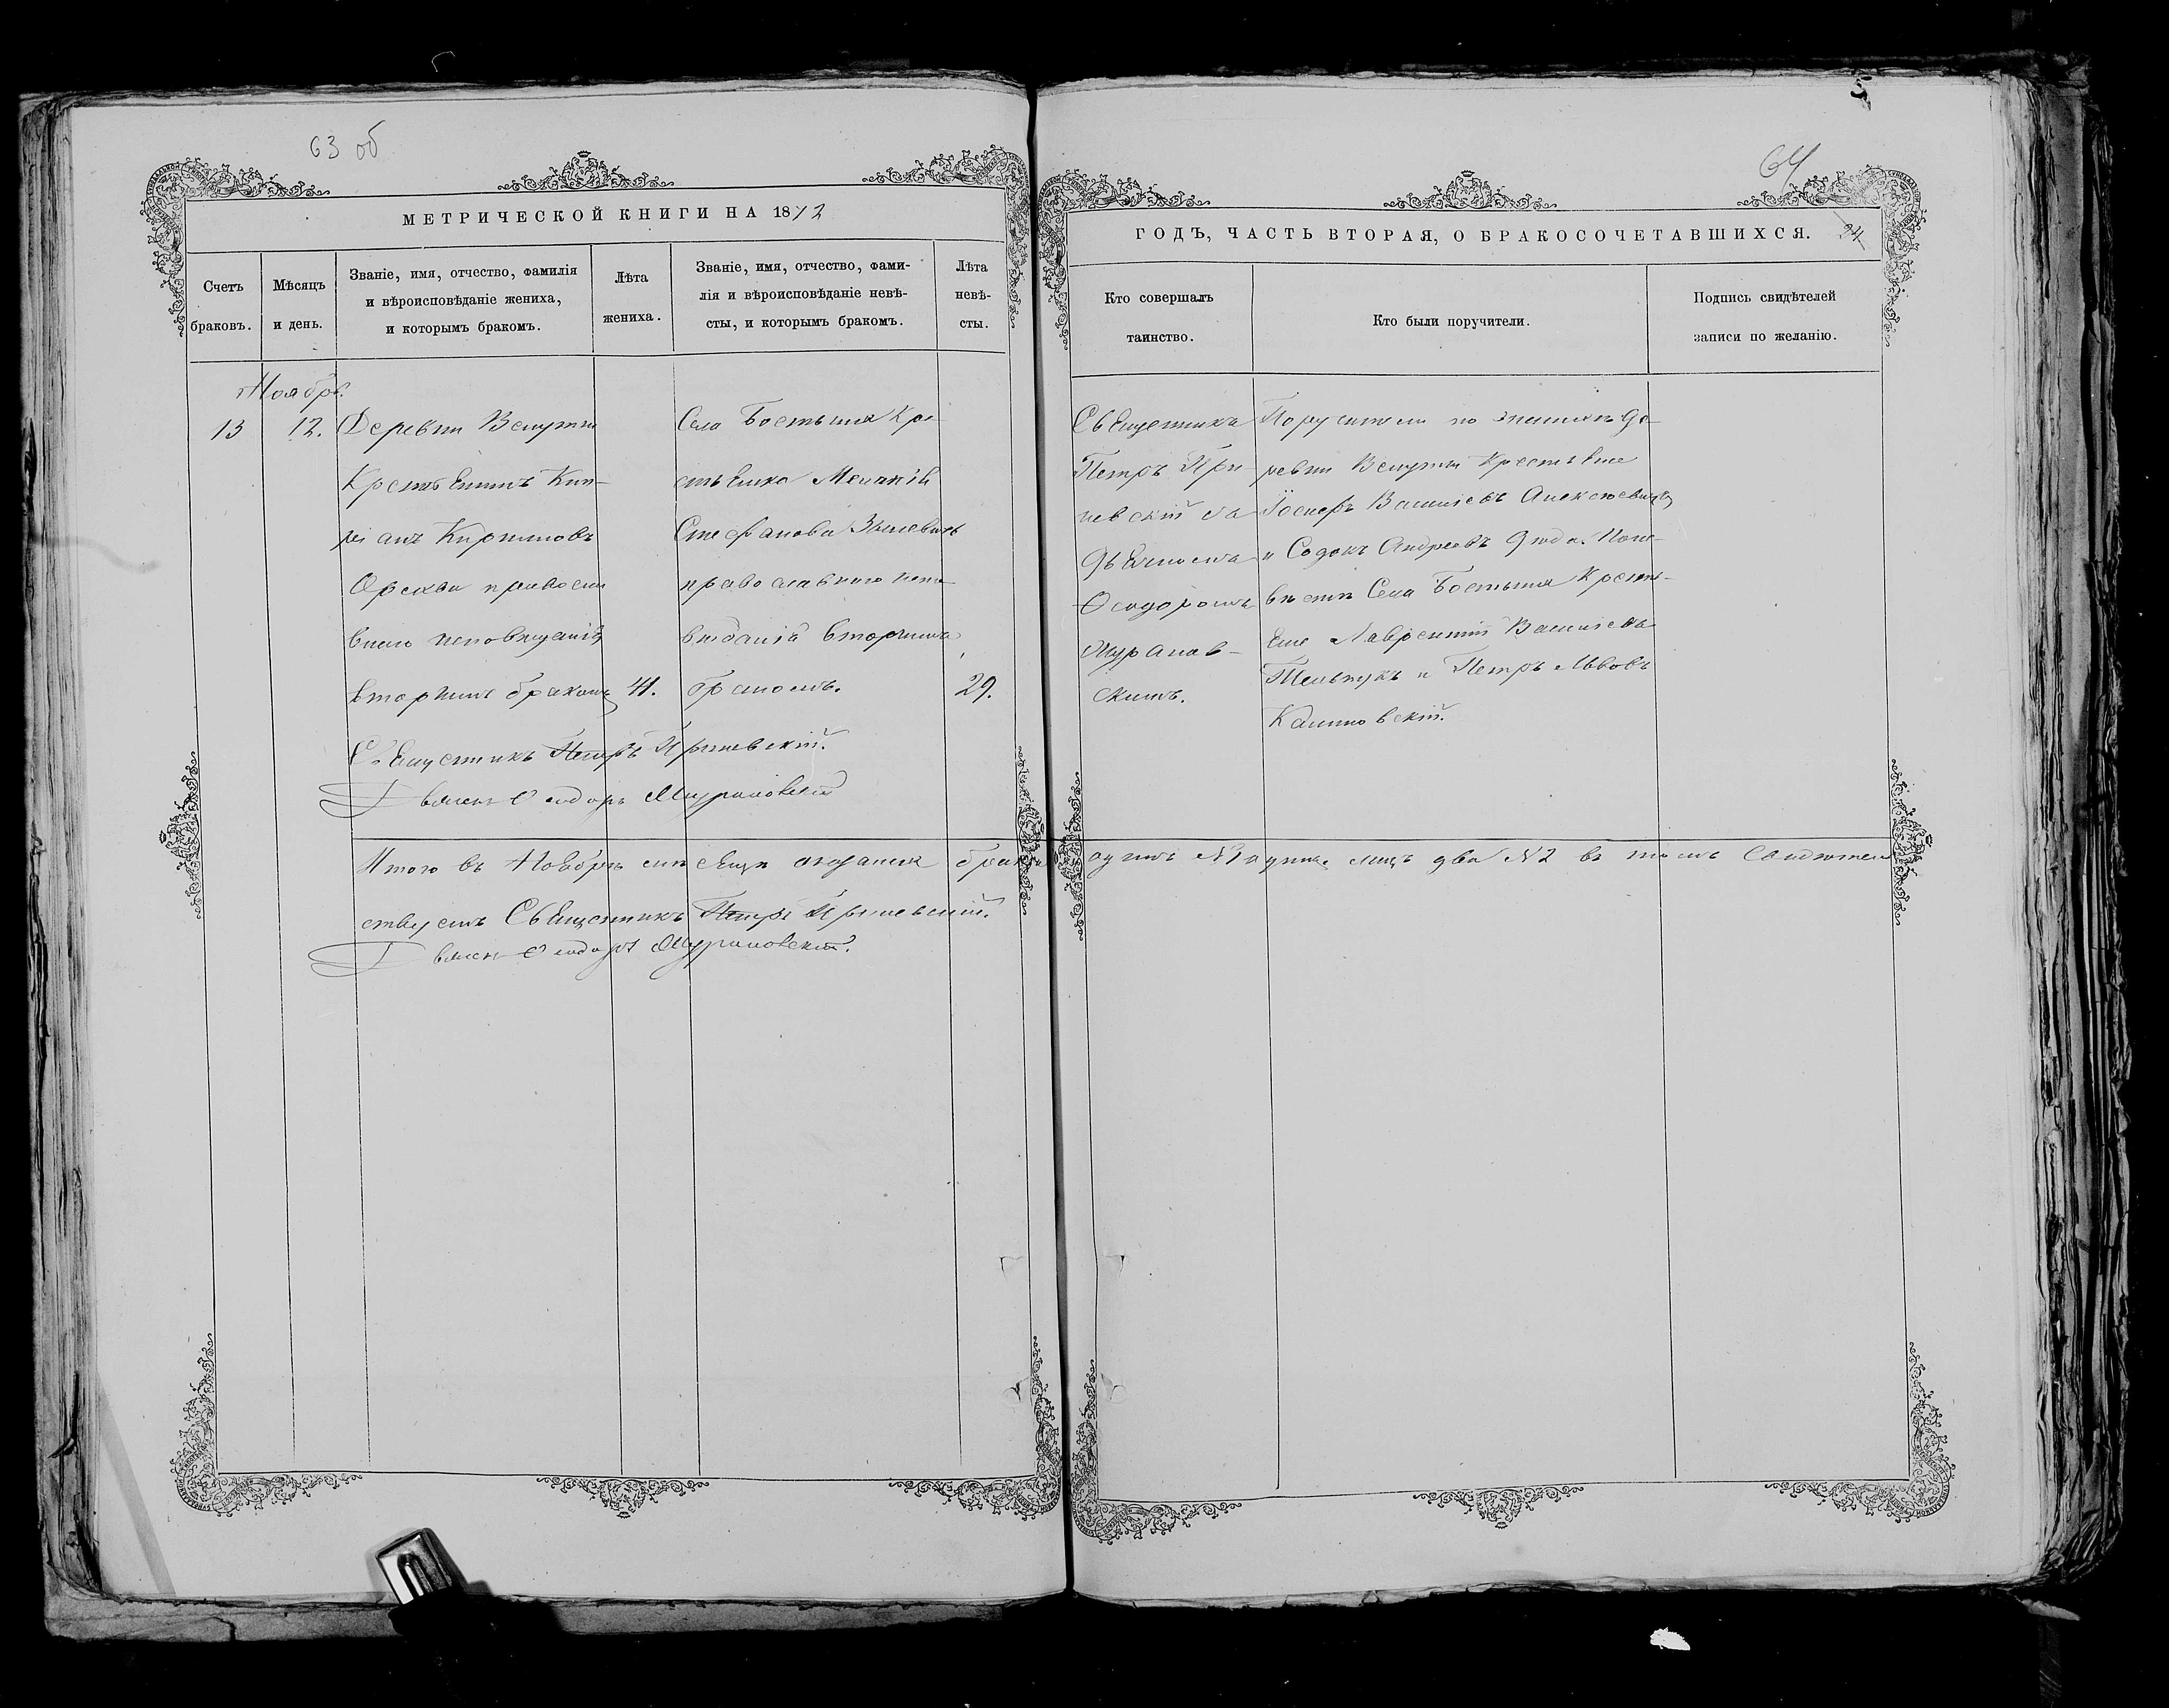 63 об
МЕТРИЧЕСКОЙ КНИГИ НА 1872
Счетъ браковъ.
Мѣсяцъ и день.
Званіе, имя, отчество, фамилія
и вѣроисповѣданіе жениха,
и которымъ бракомъ.
Лѣта
жениха.
Званіе, имя, отчество, фами-
лія и вѣроисповѣданіе невѣ-
сты, и которымъ бракомъ.
Лѣта
невѣ-
сты.
Ноябрь
13
12.
Деревни Велуты
Крестьянинъ Кип-
ріанъ Киріиновъ
православ
внаго исповѣданія
вторымъ бракомъ
41.
Села Бостыня Кре
стьянка Меланія
Стефанова
православнаго испо
вѣданія вторымъ
бракомъ.
29.
Священникъ Петръ
Ѳеодоръ Мурановскій
Итого въ Ноябрѣ мѣсяцѣ браковъ
ствуемъ Священникъ Петръ
Ѳеодоръ Мурановскій.
64
ГОДЪ, ЧАСТЬ ВТОРАЯ, О БРАКОСОЧЕТАВШИХСЯ.
24
Кто совершалъ
таинство.
Кто были поручители.
Подпись свидѣтелей
записи по желанію.
Священникъ
Петръ
невскій съ
дьячкомъ
Ѳеодоромъ
Муранов-
скимъ.
Поручители по женихѣ де-
ревни Велуты Крестьяне
Іосифъ Васильевъ Алексіевичъ
и Андреевъ По не-
вѣстѣ Села Бостыня Кресть-
яне Лаврентій Васильевъ
и Петръ Львовъ
Калиновскій.
одинъ №1 лицъ два №2 въ томъ Свидѣтель